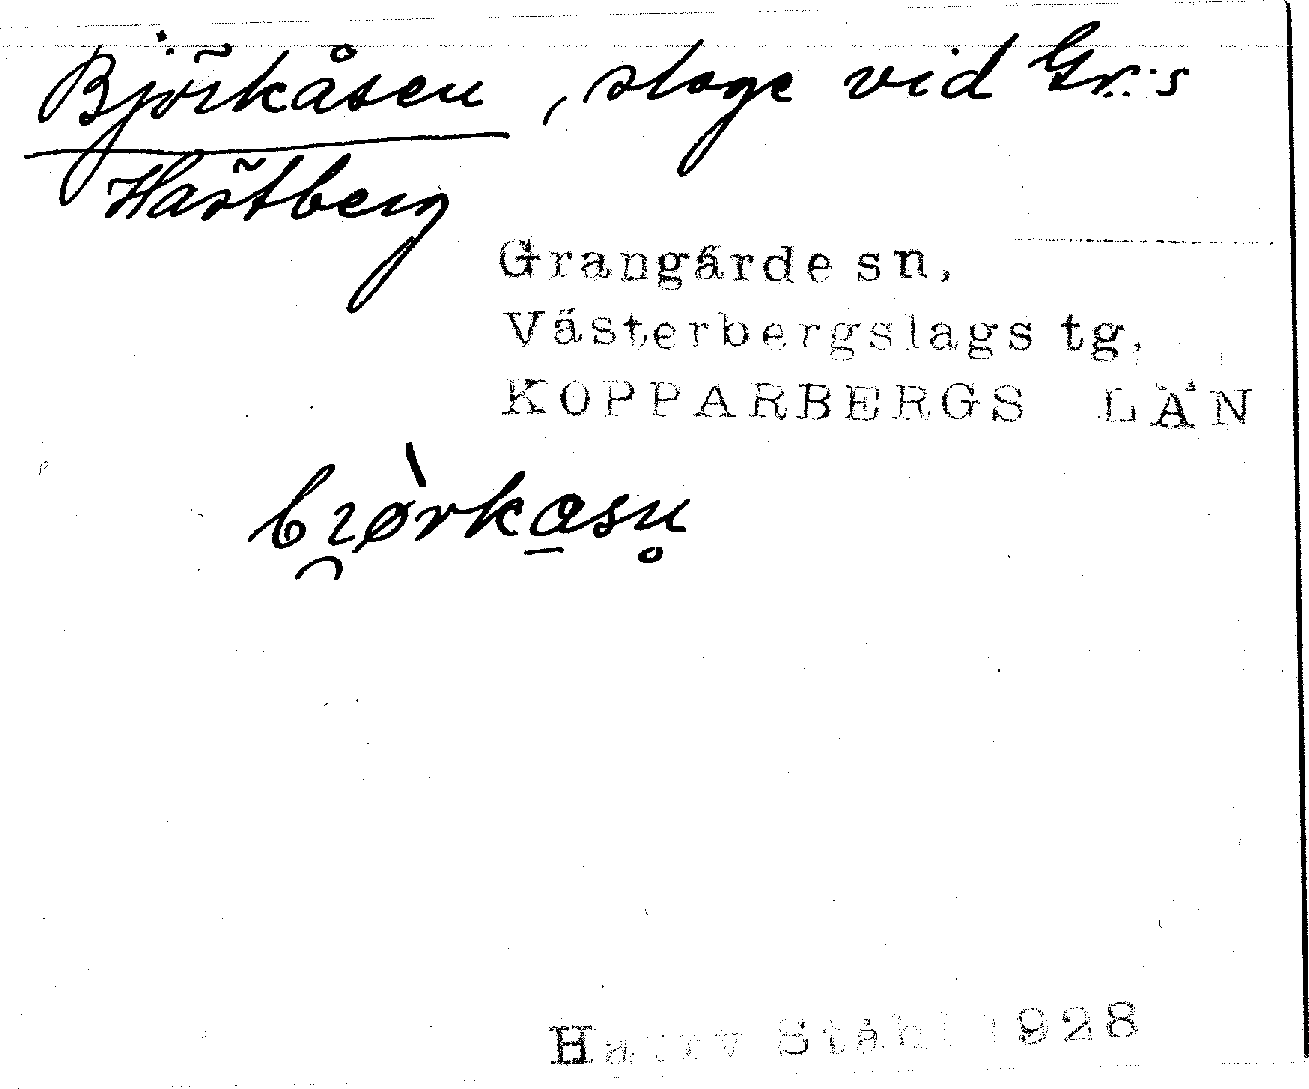 Björkåsen, sloge vid Gr:s
Hästberg
Grangärde sn,
Västerbergslags tg,
KOPPARBERGS LÄN
Harry Ståhl 1928